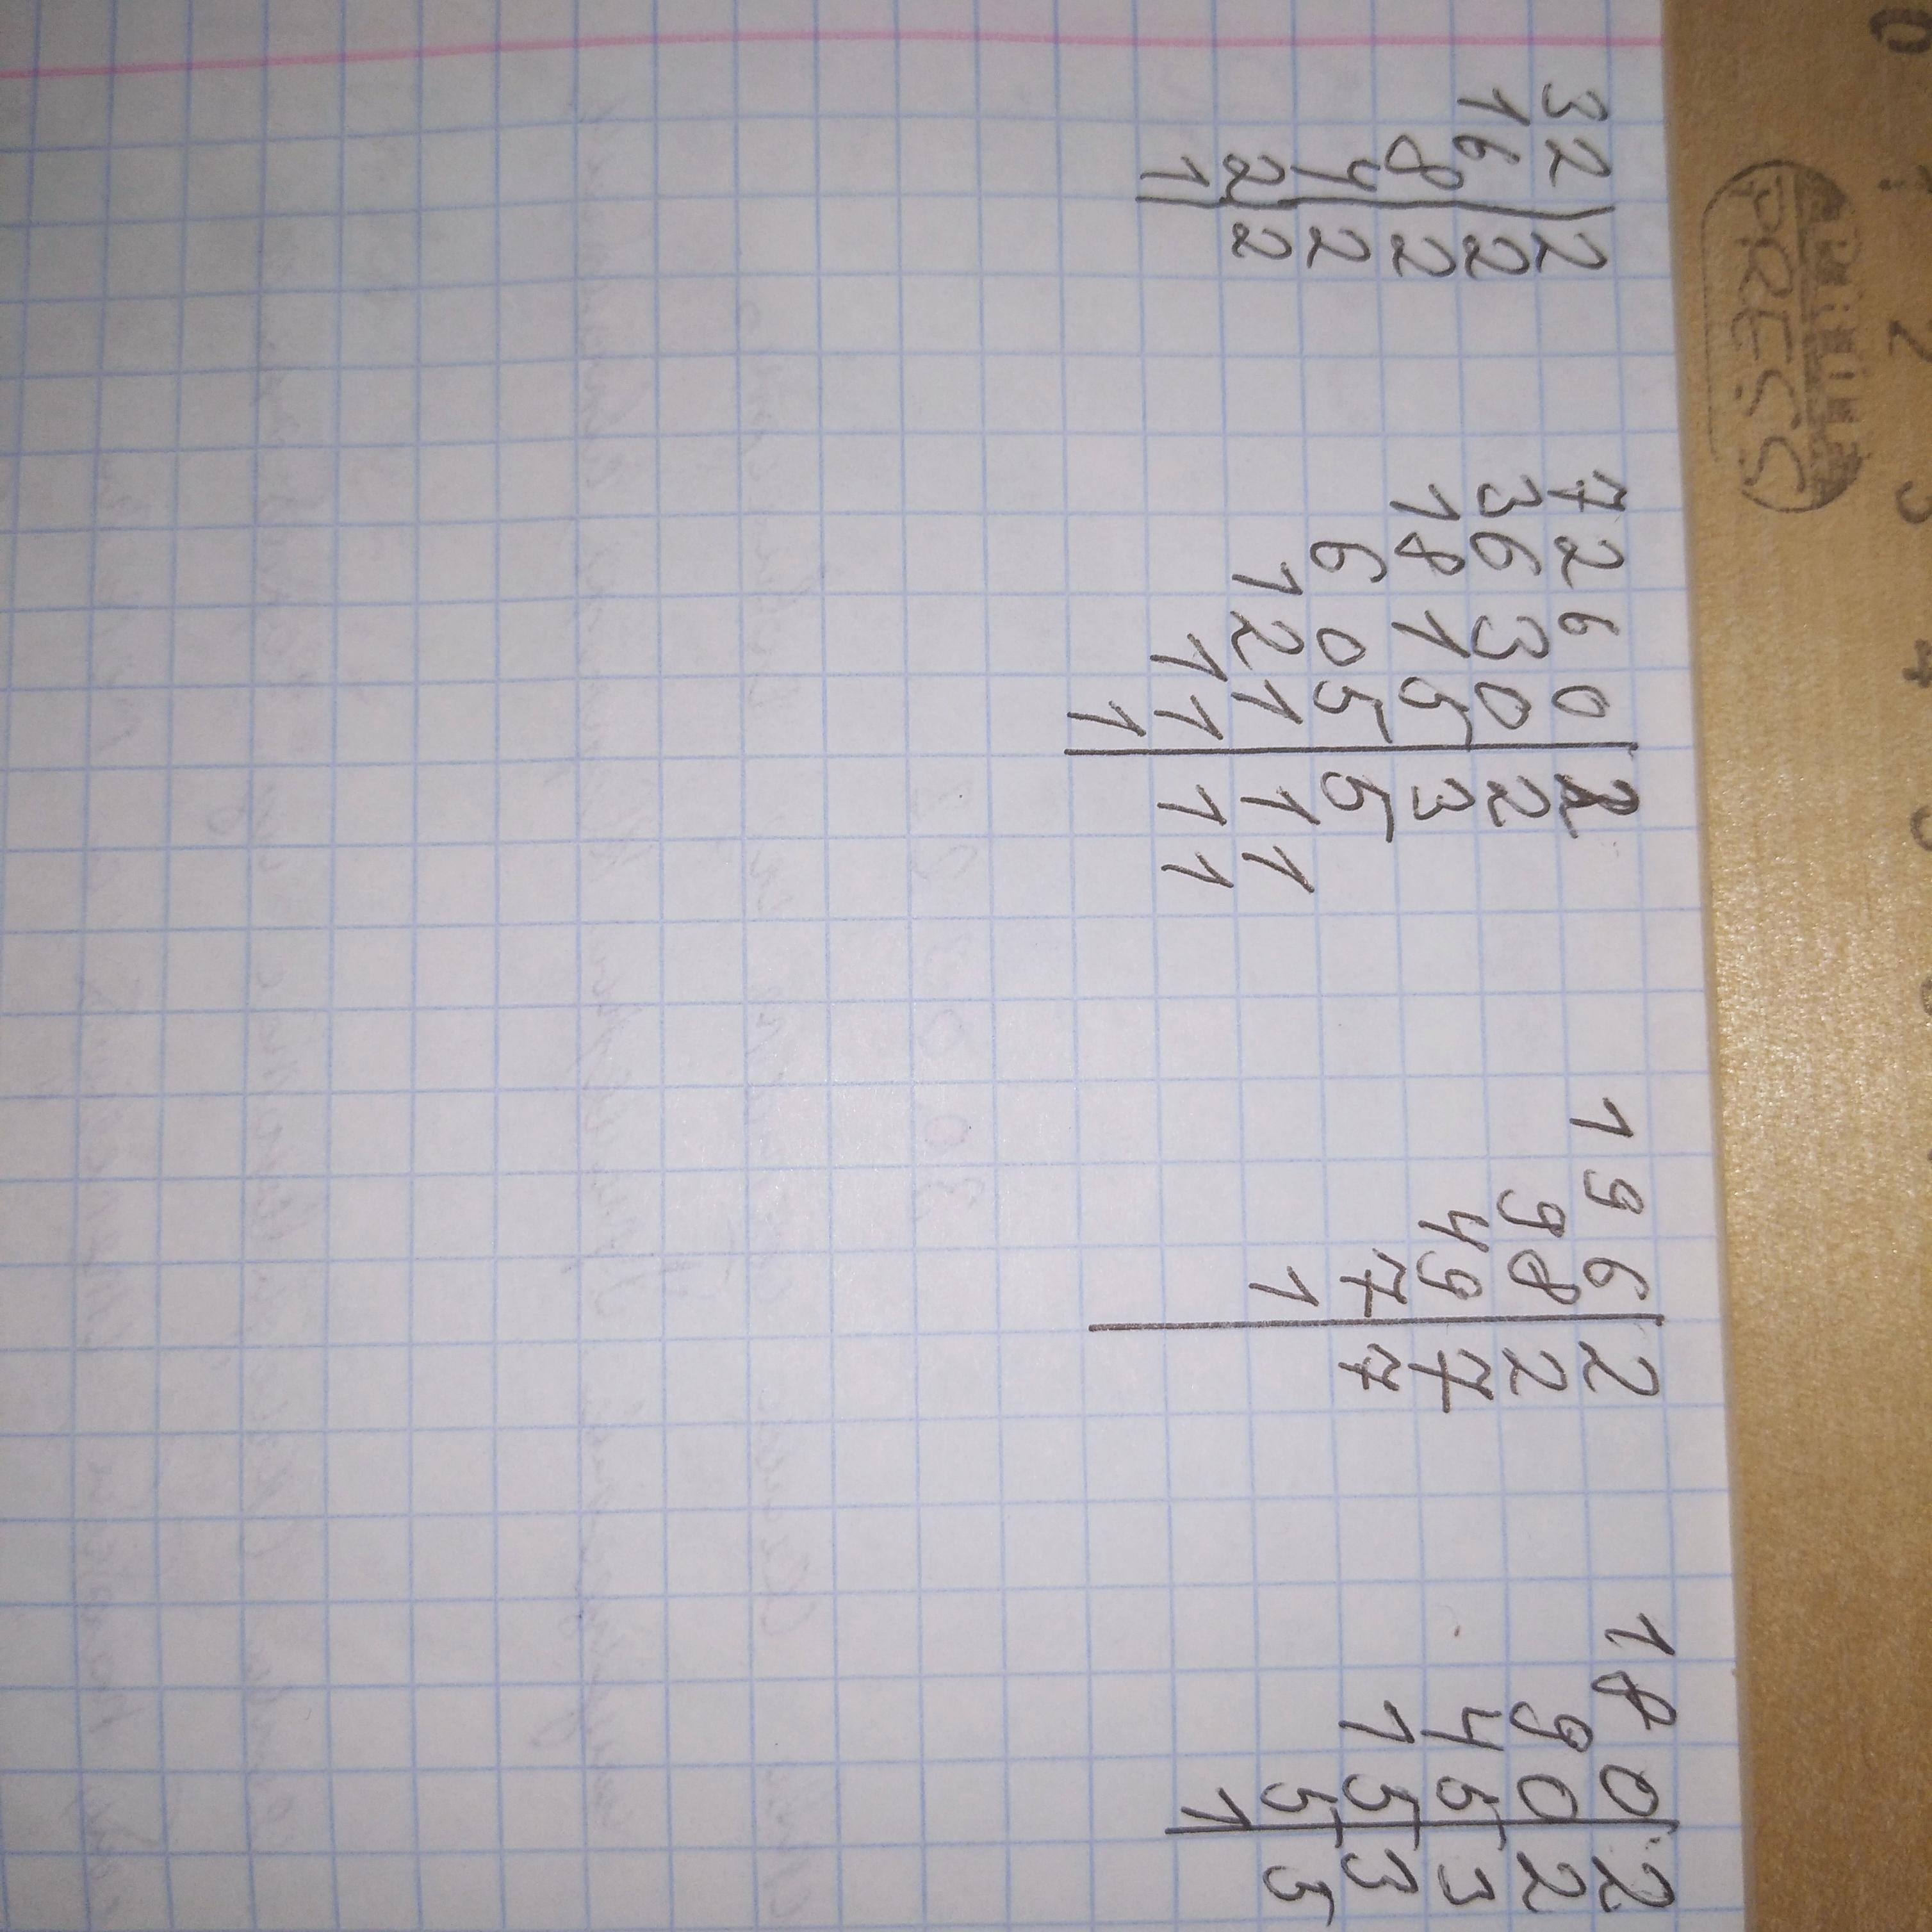 2 3 4
PRESS
32|2
16|2
8|2
4|2
2|2
1|
7260|2
3630|2
1815|3
605|5
121|11
11|11
1|
196|2
98|2
49|7
7|7
1|
180|2
90|2
45|3
15|3
5|5
1|